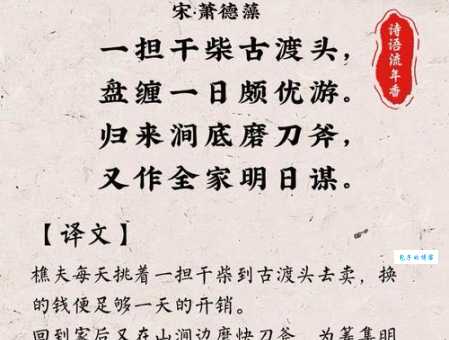 宋·萧德藻
一担干柴古渡头，
盘缠一日颇优游。
归来涧底磨刀斧，
又作全家明日谋。
诗语流年香
【译文】
樵夫每天挑着一担干柴到古渡头去卖，换
的钱便足够一天的开销。
包子的博客
回到家后又在山涧边磨快刀斧，为筹集明